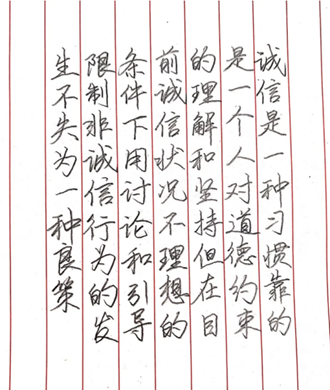 诚信是一种习惯靠的
是一个人对道德约束
的理解和坚持但在目
前诚信状况不理想的
条件下用讨论和引导
限制非诚信行为的发
生不失为一种良策